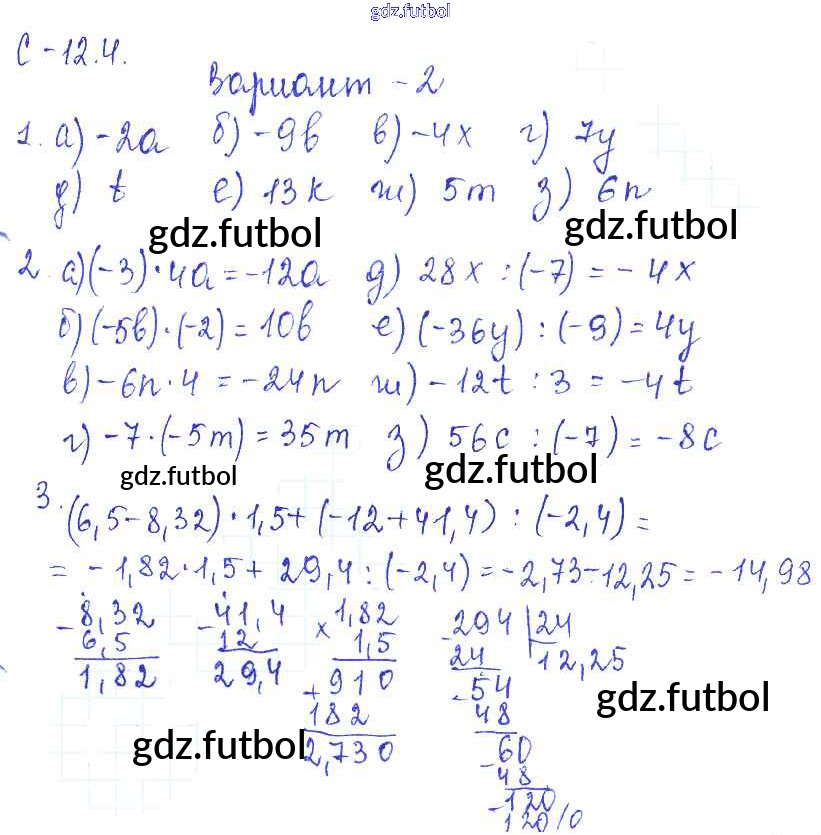 gdz.futbol
С-12.4.
Вариант-2
1. а) -2a б) -9b в) -4x г) 7y
д) t е) 13k ж) 5m з) 6n
gdz.futbol gdz.futbol
2. а) (-3)·4a=-12a д) 28x:(-7)=-4x
б) (-5b)·(-2)=10b е) (-36y):(-9)=4y
в) -6n·4=-24n ж) -12t:3=-4t
г) -7·(-5m)=35m з) 56c:(-7)=-8c
gdz.futbol gdz.futbol
3. (6,5-8,32)·1,5+(-12+41,4):(-2,4)=
=-1,82·1,5+29,4:(-2,4)=-2,73-12,25=-14,98
-8,32 -41,4 ×1,82 -294|24
6,5 12 1,5 24 12,25
1,82 29,4 +910 -54
gdz.futbol
182 48
gdz.futbol
2,730 -60
48
-120
120/0